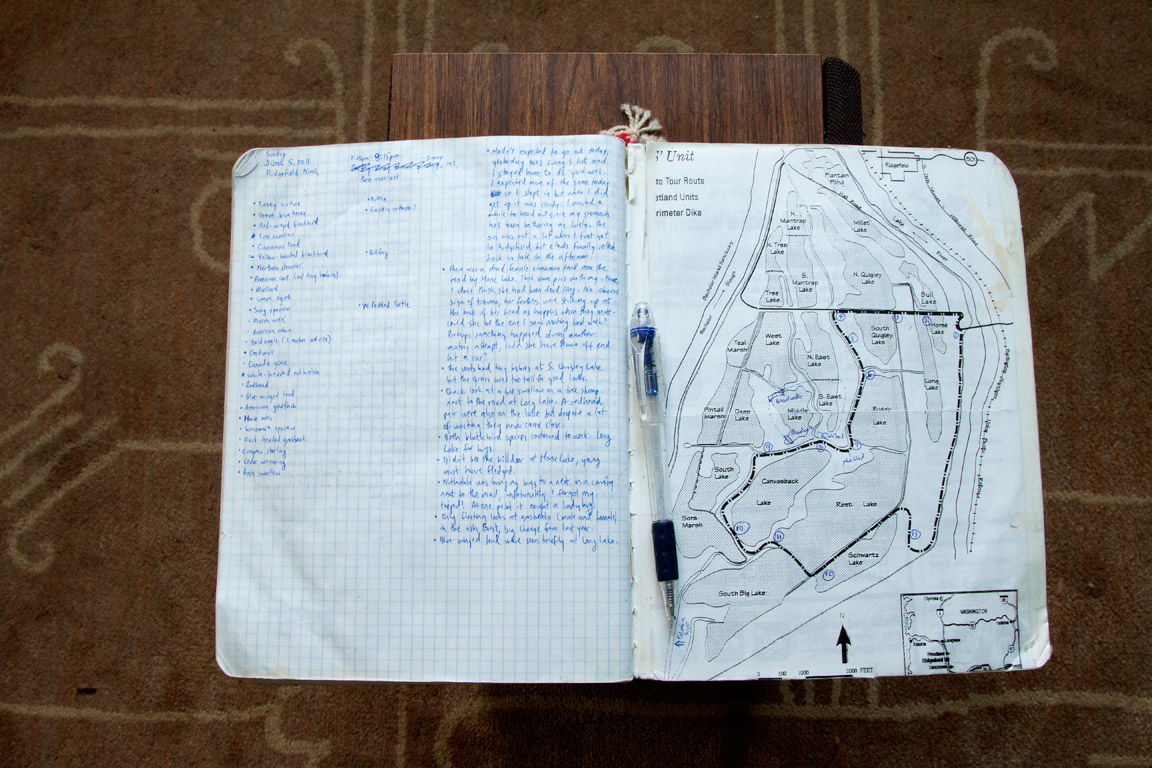 Sunday
June 5, 2011
Ridgefield NWR
• Turkey vulture
• Great blue heron
• Red-winged blackbird
• Tree swallow
• Cinnamon teal
• Yellow-headed blackbird
• Northern shoveler
• American coot (w/ tiny babies)
• Mallard
• Great egret
• Song sparrow
• Marsh wren
• American robin
• Bald eagle (2 mature adults)
• Gadwall
• Canada goose
• White-breasted nuthatch
• Redhead
• Blue-winged teal
• American goldfinch
• House wren
• Savannah sparrow
• Black-headed grosbeak
• European starling
• Cedar waxwing
• Barn swallow
sunny
• Nutria
• Eastern cottontail
• Bullfrog
• W. Painted Turtle
• Hadn't expected to go out today,
yesterday was sunny & hot and
I stayed home to do yard work.
I expected more of the same today
so I slept in but when I did
get up it was cloudy. I waited a
while to head out since my stomach
has been bothering me lately. The
sun was out a lot when I first got
to Ridgefield but clouds finally rolled
back in late in the afternoon.
• There was a dead female cinnamon teal near the
road by Horse Lake. Took some pics with my iPhone,
I don't think she had been dead long. No obvious
sign of trauma, her feathers were sticking up at
the back of her head as happens when they mate -
could she be the one I saw mating last week?
Perhaps something happened during another
mating attempt, could she have flown off and
hit a car?
• The coots had tiny babies at S. Quigley Lake
but the grass was too tall for good looks.
• Quick look at a tree swallow in a tree stump
next to the road at Long Lake. A redhead
pair were also on the lake but despite a lot
of waiting they never came close.
• Both blackbird species continued to work Long
Lake for bugs.
• Didn't see the killdeer at Horse Lake, young
must have fledged.
• Nuthatch was bringing bugs to a nest in a cavity
next to the road, unfortunately I forgot my
tripod! At one point it caught a ladybug.
• Only fleeting looks at grosbeaks (male and female)
in the ash forest, big change from last year.
• Blue-winged teal were seen briefly at Long Lake.
' Unit
to Tour Route
etland Units
rimeter Dike
Ridgefield
501
Plantain
Pond
N.
Mantrap
Lake
Millet
Lake
Lake
River
Bachelor Island Sanctuary
Bachelor
Slough
N. Tree
Lake
S.
Mantrap
Lake
N. Quigley
Lake
Tree
Lake
Bull
Lake
West
Lake
South
Quigley
Lake
Horse
Lake
Teal
Marsh
N. East
Lake
Long
Lake
Pintail
Marsh
Deep
Lake
Middle
Lake
S. East
Lake
Ruddy
Lake
South
Lake
Canvasback
Lake
Rest Lake
Sora
Marsh
9
10
11
12
13
Schwartz
Lake
South Big Lake
N
0 500 1000 1000 FEET
WASHINGTON
Olympia
Ridgefield
Vancouver